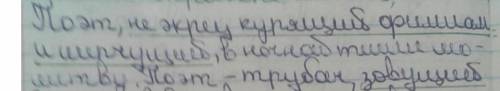 Поэт, не жрец курящий фимиам
и шепчущий, в ночной тиши мо-
литвы. Поэт, - трубач, зовущий